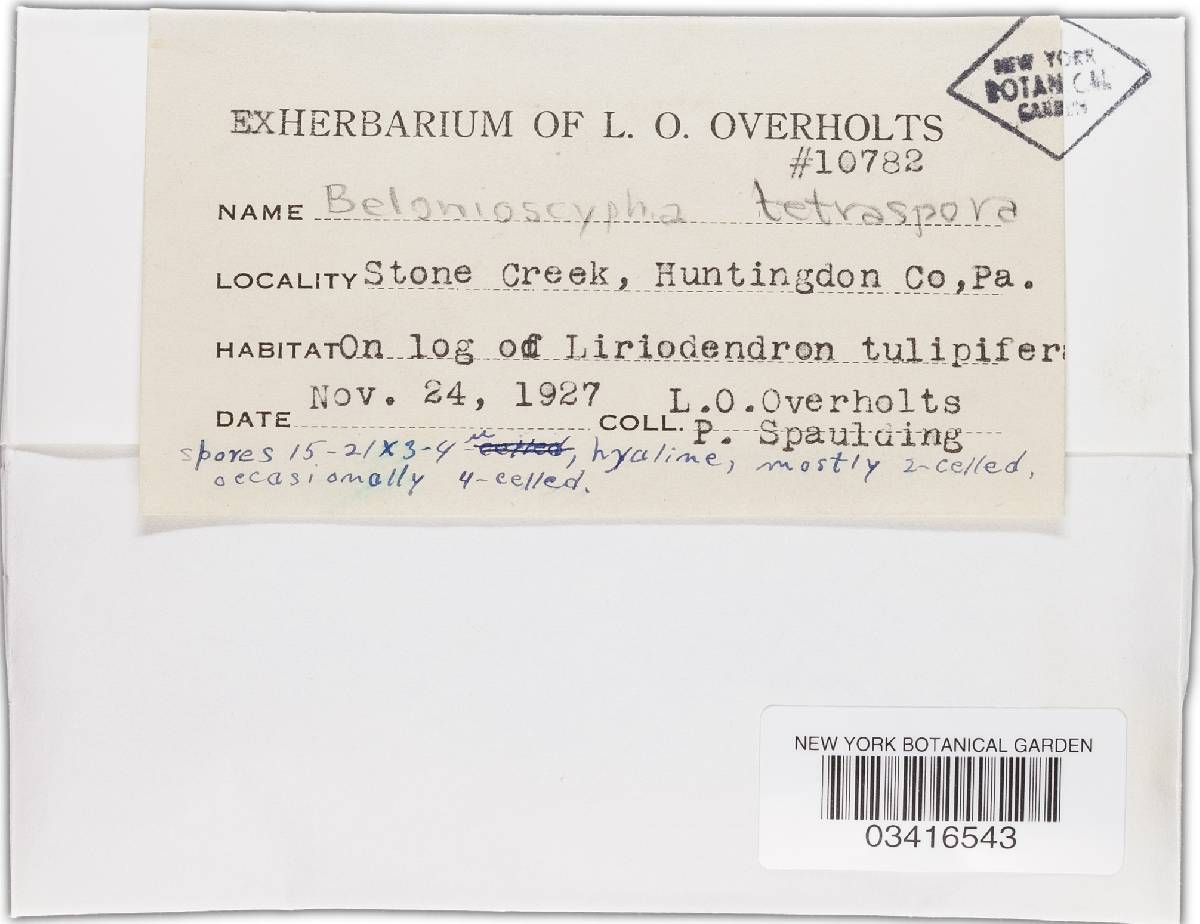 NEW YORK
BOTANICAL
GARDEN
EXHERBARIUM OF L. O. OVERHOLTS
#10782
NAME Belonioscypha tetraspora
LOCALITY Stone Creek, Huntingdon Co,Pa.
HABITAT On log of Liriodendron tulipifer
DATE Nov. 24, 1927 COLL. L.O.Overholts
P. Spaulding
spores 15-21X3-4 µ celled, hyaline, mostly 2-celled,
occasionally 4-celled.
NEW YORK BOTANICAL GARDEN
03416543